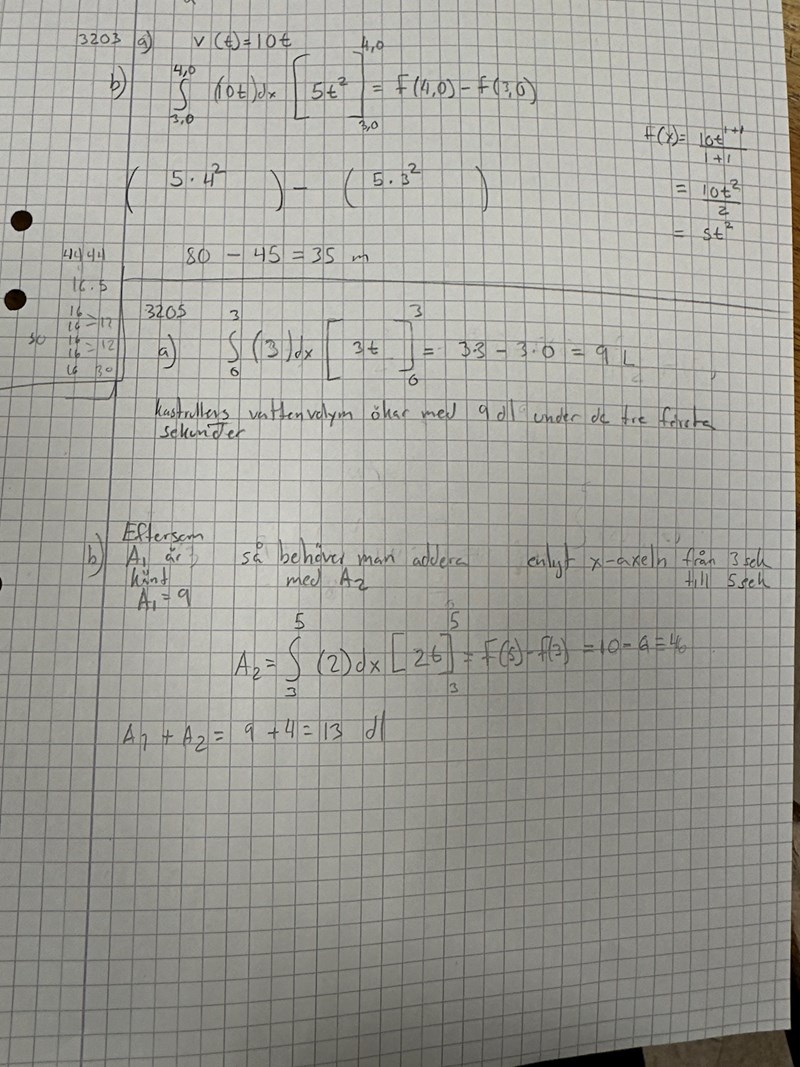 3203 a) v(t)=10t
b) ∫ 3,0 4,0 (10t)dx [5t²] 3,0 4,0 = F(4,0) - F(3,0)
F(x) = 10t¹⁺¹ / 1+1
= 10t² / 2
= 5t²
(5·4²) - (5·3²)
80 - 45 = 35 m
16.5
16
16 = 12
16
16 = 12
16 30
30
3205
a) ∫ 0 3 (3)dx [3t] 0 3 = 3·3 - 3·0 = 9 L
kastrullens vattenvolym ökar med 9 dl under de tre första
sekunder
b) Eftersom
A₁ är så behöver man addera enlyt x-axeln från 3 sek
känt med A₂ till 5 sek
A₁ = 9
A₂ = ∫ 3 5 (2)dx [2t] 3 5 = F(5) - F(3) = 10 - 6 = 4
A₁ + A₂ = 9 + 4 = 13 dl